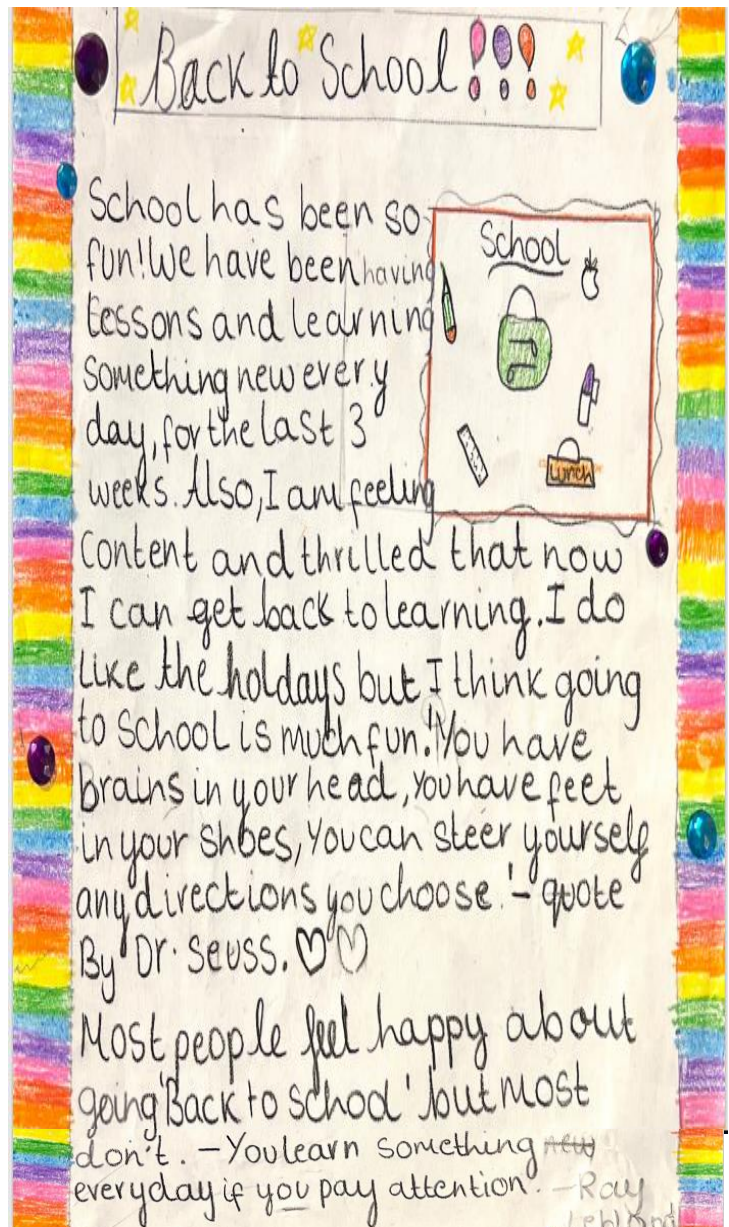 Back to School!!!
School has been so
fun! We have been having
Lessons and learning
Something new every
day, for the last 3
weeks. Also, I am feeling
School
Lunch
Content and thrilled that now
I can get back to learning. I do
like the holdays but I think going
to School is much fun. 'You have
brains in your head, you have feet
in your shoes, You can steer yourself
any directions you choose.' - quote
By Dr. Seuss.
Most people feel happy about
going 'Back to school' but most
don't. - You learn something new
everyday if you pay attention. - Ray
Leblond